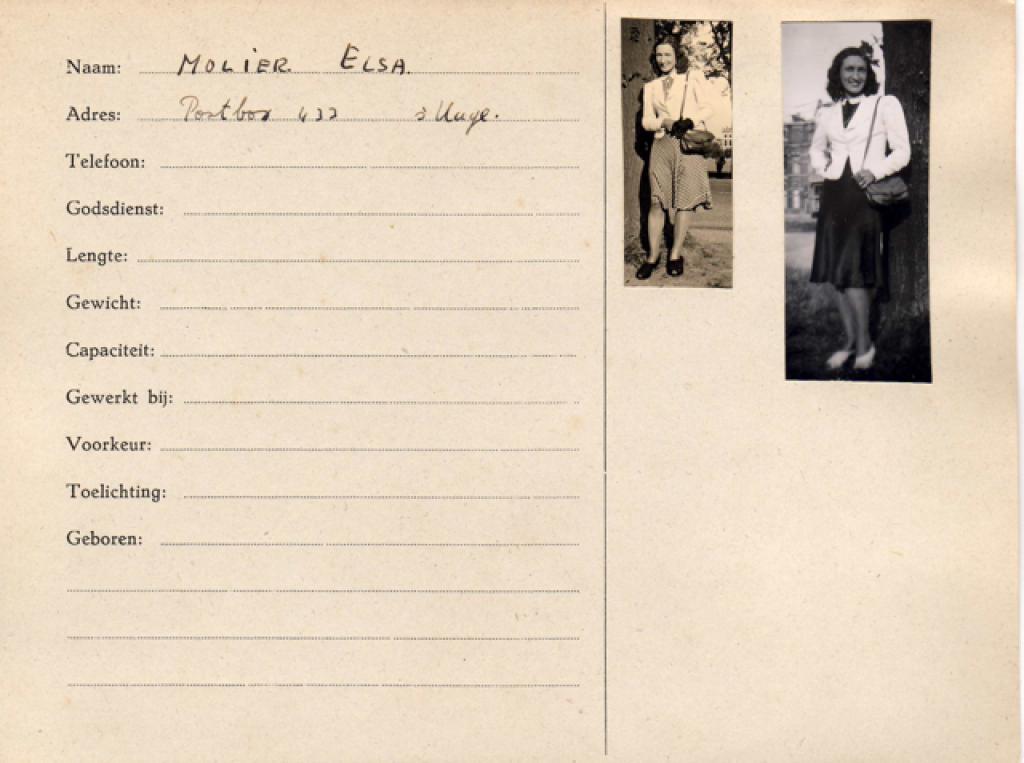 Naam: MOLIER ELSA.
Adres: Postbox 433 's Hage.
Telefoon:
Godsdienst:
Lengte:
Gewicht:
Capaciteit:
Gewerkt bij:
Voorkeur:
Toelichting:
Geboren: